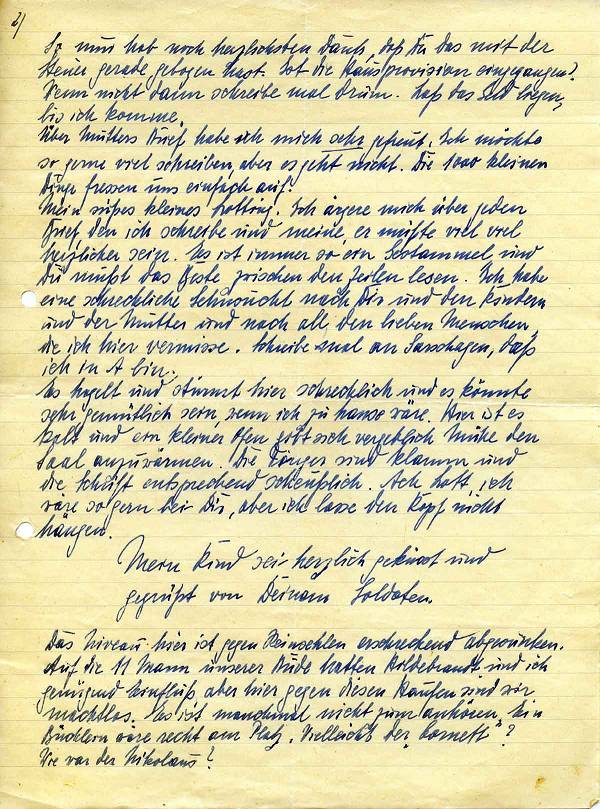 2)
So nun hab noch herzlichsten Dank, daß Du das mit der
Steuer gerade gebogen hast. Ist die Hausprovision eingegangen?
Wenn nicht dann schreibe mal drum. Laß das Geld liegen,
bis ich komme.
Über Mutters Brief habe ich mich sehr gefreut. Ich möchte
so gerne viel schreiben, aber es geht nicht. Die 1000 kleinen
Dinge fressen uns einfach auf!
Mein süßes kleines Ich ärgere mich über jeden
Brief, den ich schreibe und meine, er müßte viel viel
herzlicher sein. Es ist immer so ein Gestammel und
Du mußt das Beste zwischen den Zeilen lesen. Ich habe
eine schreckliche Sehnsucht nach Dir und den Kindern
und der Mutter und nach all den lieben Menschen,
die ich hier vermisse. Schreibe mal an daß
ich in A bin.
Es hagelt und stürmt hier schrecklich und es könnte
sehr gemütlich sein, wenn ich zu hause wäre. Hier ist es
kalt und ein kleiner Ofen gibt sich vergeblich Mühe den
Saal anzuwärmen. Die Finger sind klamm und
die Schrift entsprechend scheußlich. Ach Lott, ich
wäre so gern bei Dir, aber ich lasse den Kopf nicht
hängen.
Mein Kind sei herzlich geküsst und
gegrüßt von Deinem Soldaten.
Das Niveau hier ist gegen Reinsehlen erschreckend abgesunken.
Auf die 11 Mann unserer Bude hatten Hildebrandt und ich
genügend Einfluß aber hier gegen diesen Haufen sind wir
machtlos. Es ist manchmal nicht zum anhören. Ein
Büchlein wäre recht am Platz. Vielleicht der "Cornett"?
Wie war der Nikolaus?